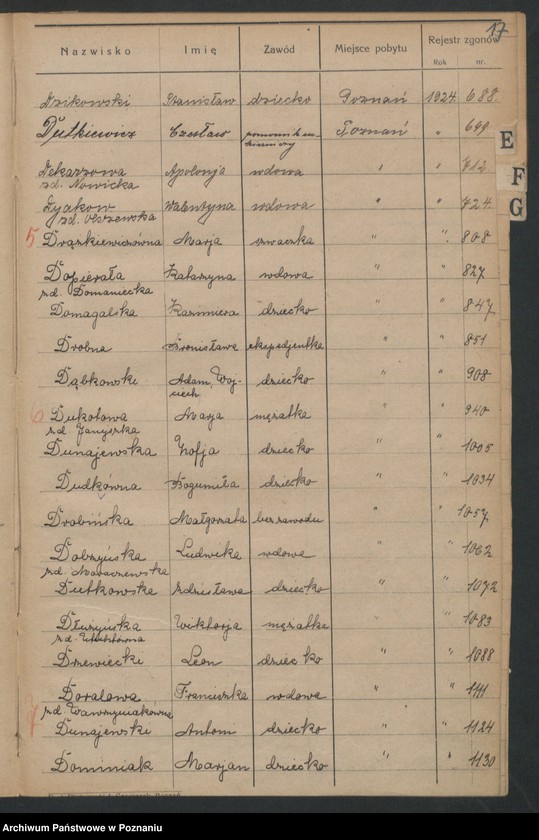 17
Nazwisko Imię Zawód Miejsce pobytu Rejestr zgonów
Rok nr.
Dzikowski Stanisław dziecko Poznań 1924 688.
Dutkiewicz Czesław Poznań " 699
Dekarzowa Apolonja wdowa " " 712
zd. Nowicka
Dyakow Walentyna wdowa " " 724
zd. Olszewska
5 Drążkiewiczówna Marja szwaczka " " 808
Dopierała Katarzyna wdowa " " 827
zd. Domaniecka
Domagalska Kazimiera dziecko " " 847
Drobna Bronisława ekspedjentka " " 851
Dąbkowski Adam, Woj- dziecko " " 908
ciech
6 Dukotowa Marja mężatka " " 940
zd. Janyszka
Dunajewska Zofja dziecko " " 1005
Dudkówna Bogumiła dziecko " " 1034
Drobińska Małgorzata bez zawodu " " 1057
Dobrzyńska Ludwika wdowa " " 1062
Dutkowska Zdzisława dziecko " " 1072
Dłużyńska Wiktorja mężatka " " 1083
Drzewiecki Leon dziecko " " 1088
Doralowa Franciszka wdowa " " 1141
zd. Wawrzyniakówna
7 Dunajewski Antoni dziecko " " 1124
Dominiak Marjan dziecko " " 1130
E
F
G
Archiwum Państwowe w Poznaniu